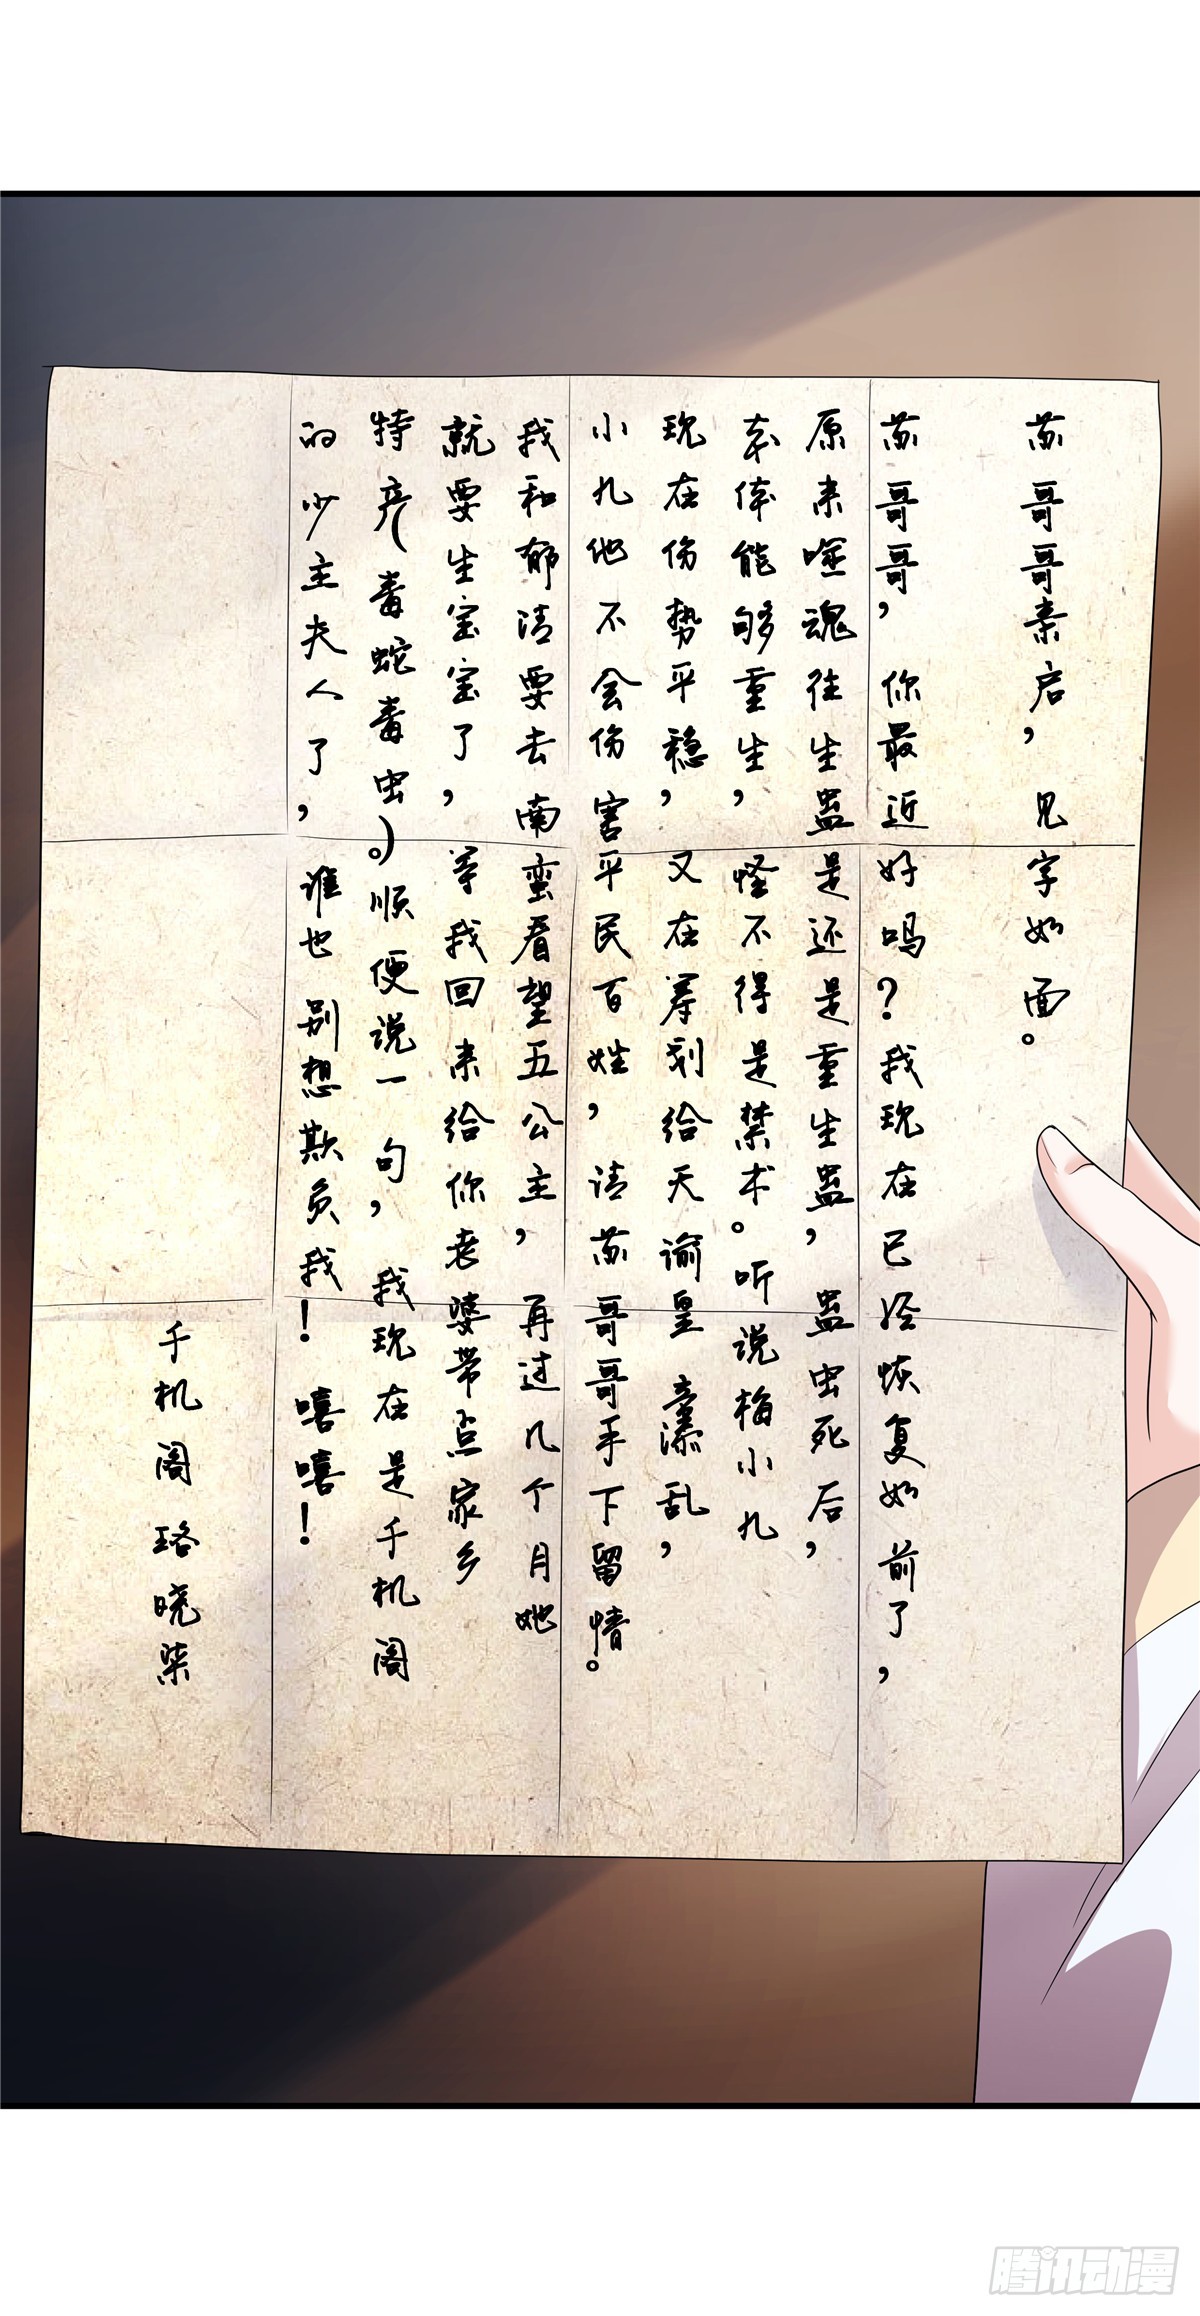 苏哥哥亲启，见字如面。
苏哥哥，你最近好吗？我现在已经恢复如前了，
原来噬魂往生蛊是还是重生蛊，蛊虫死后，
本体能够重生，怪不得是禁术。听说梅小九
现在伤势平稳，又在筹划给天谕皇帝添乱，
小九他不会伤害平民百姓，请苏哥哥手下留情。
我和郁清要去南蛮看望五公主，再过几个月她
就要生宝宝了，等我回来给你老婆带点家乡
特产（毒蛇毒虫）。顺便说一句，我现在是千机阁
的少主夫人了，谁也别想欺负我！嘻嘻！
千机阁珞晓柒
腾讯动漫